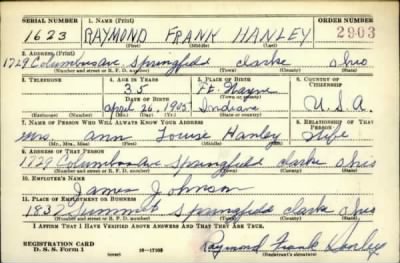 SERIAL NUMBER 1. NAME (Print) ORDER NUMBER
1623 RAYMOND FRANK HANLEY 2903
(First) (Middle) (Last)
2. ADDRESS (Print)
1729 Columbus Ave Springfield Clarke Ohio
(Number and street or R. F. D. number) (Town) (County) (State)
3. TELEPHONE 4. AGE IN YEARS 5. PLACE OF BIRTH 6. COUNTRY OF CITIZENSHIP
35 Ft. Wayne
DATE OF BIRTH
April 26, 1905 Indiana U.S.A.
7. NAME OF PERSON WHO WILL ALWAYS KNOW YOUR ADDRESS 8. RELATIONSHIP OF THAT PERSON
Mrs. Ann Louise Hanley Wife
(Mr., Mrs., Miss) (First) (Middle) (Last)
9. ADDRESS OF THAT PERSON
1729 Columbus Ave Springfield Clarke Ohio
(Number and street or R. F. D. number) (Town) (County) (State)
10. EMPLOYER'S NAME
James Johnson
11. PLACE OF EMPLOYMENT OR BUSINESS
1832 Springfield Clarke Ohio
(Number and street or R. F. D. number) (Town) (County) (State)
I AFFIRM THAT I HAVE VERIFIED ABOVE ANSWERS AND THAT THEY ARE TRUE.
REGISTRATION CARD
D. S. S. Form 1 Raymond Frank Hanley
(over) (Registrant's signature)